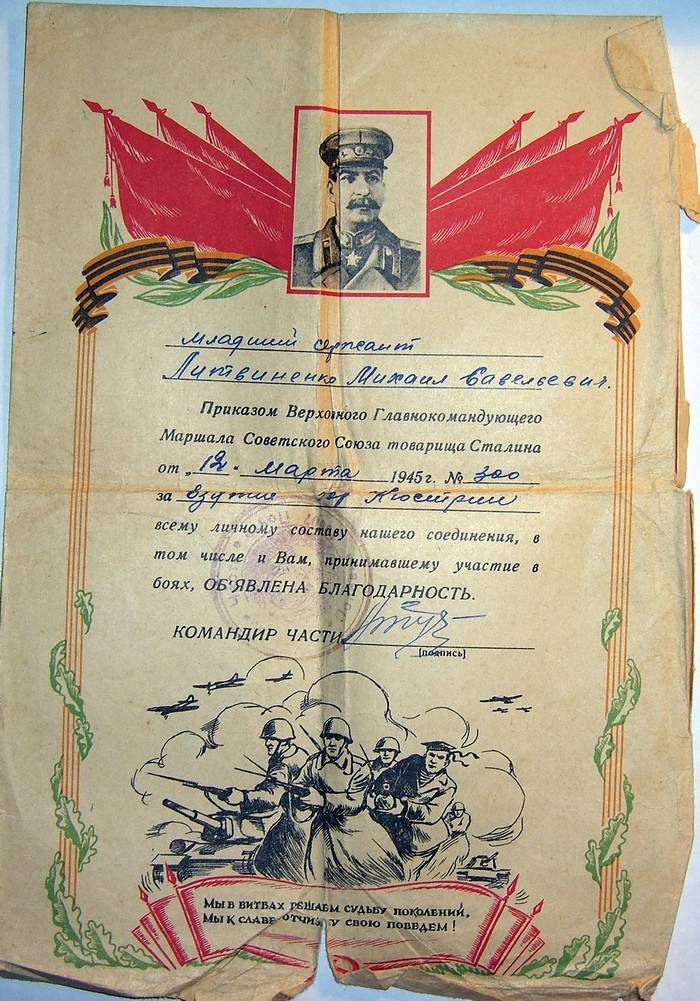 Младший сержант
Литвиненко Михаил Савельевич.
Приказом Верховного Главнокомандующего
Маршала Советского Союза товарища Сталина
от „12“ Марта 1945 г. № 300
за взятие гор Кюстрин
всему личному составу нашего соединения, в
том числе и Вам, принимавшему участие в
боях, ОБ'ЯВЛЕНА БЛАГОДАРНОСТЬ.
КОМАНДИР ЧАСТИ
[подпись]
МЫ В БИТВАХ РЕШАЕМ СУДЬБУ ПОКОЛЕНИЙ,
МЫ К СЛАВЕ ОТЧИЗНУ СВОЮ ПОВЕДЕМ!